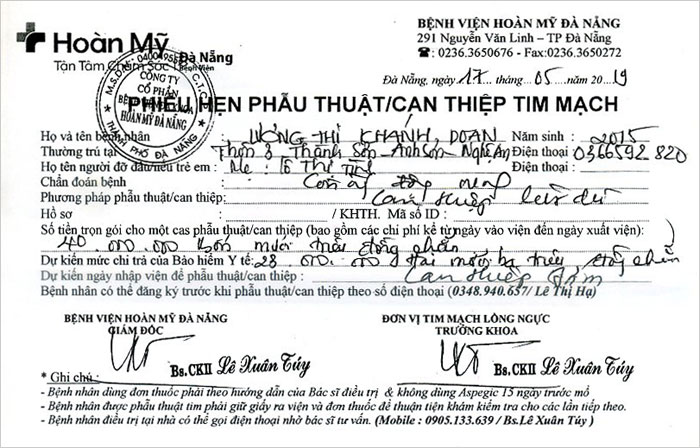 Hoàn Mỹ
Đà Nẵng
Bệnh Viện
Tận Tâm Chăm Sóc
BỆNH VIỆN HOÀN MỸ ĐÀ NẴNG
291 Nguyễn Văn Linh – TP Đà Nẵng
☎: 0236.3650676 - Fax:0236.3650272
M.S.D.N: 04004955 C.T.C.P
CÔNG TY
CỔ PHẦN
BỆNH VIỆN
HOÀN MỸ ĐÀ NẴNG
THÀNH PHỐ ĐÀ NẴNG
Đà Nẵng, ngày 17 tháng 05 năm 2019
PHIẾU HẸN PHẪU THUẬT/CAN THIỆP TIM MẠCH
Họ và tên bệnh nhân : LƯƠNG THỊ KHÁNH ĐOAN Năm sinh : 2015
Thường trú tại : Thôn 3 Thành Sơn - Anh Sơn - Nghệ An Điện thoại : 0366592820
Họ tên người đỡ đầu nếu trẻ em : Mẹ : Tô Thị Điện thoại :
Chẩn đoán bệnh : Còn ống động mạch
Phương pháp phẫu thuật/can thiệp: Can thiệp bít dù
Hồ sơ : / KHTH. Mã số ID :
Số tiền trọn gói cho một cas phẫu thuật/can thiệp (bao gồm các chi phí kể từ ngày vào viện đến ngày xuất viện):
40.000.000 bốn mươi triệu đồng chẵn
Dự kiến mức chi trả của Bảo hiểm Y tế: 23.000.000 Hai mươi ba triệu đồng chẵn
Dự kiến ngày nhập viện để phẫu thuật/can thiệp : Can thiệp sớm
Bệnh nhân có thể đăng ký trước khi phẫu thuật/can thiệp theo số điện thoại (0348.940.657/ Lê Thị Hạ)
BỆNH VIỆN HOÀN MỸ ĐÀ NẴNG
GIÁM ĐỐC
Bs.CKII Lê Xuân Túy
ĐƠN VỊ TIM MẠCH LỒNG NGỰC
TRƯỞNG KHOA
Bs.CKII Lê Xuân Túy
* Ghi chú :
- Bệnh nhân dùng đơn thuốc phải theo hướng dẫn của Bác sĩ điều trị & không dùng Aspegic 15 ngày trước mổ
- Bệnh nhân được phẫu thuật tim phải giữ giấy ra viện và đơn thuốc để thuận tiện khám kiểm tra cho các lần tiếp theo.
- Bệnh nhân điều trị tại nhà có thể gọi điện thoại nhờ bác sĩ tư vấn. (Mobile : 0905.133.639 / Bs.Lê Xuân Túy )